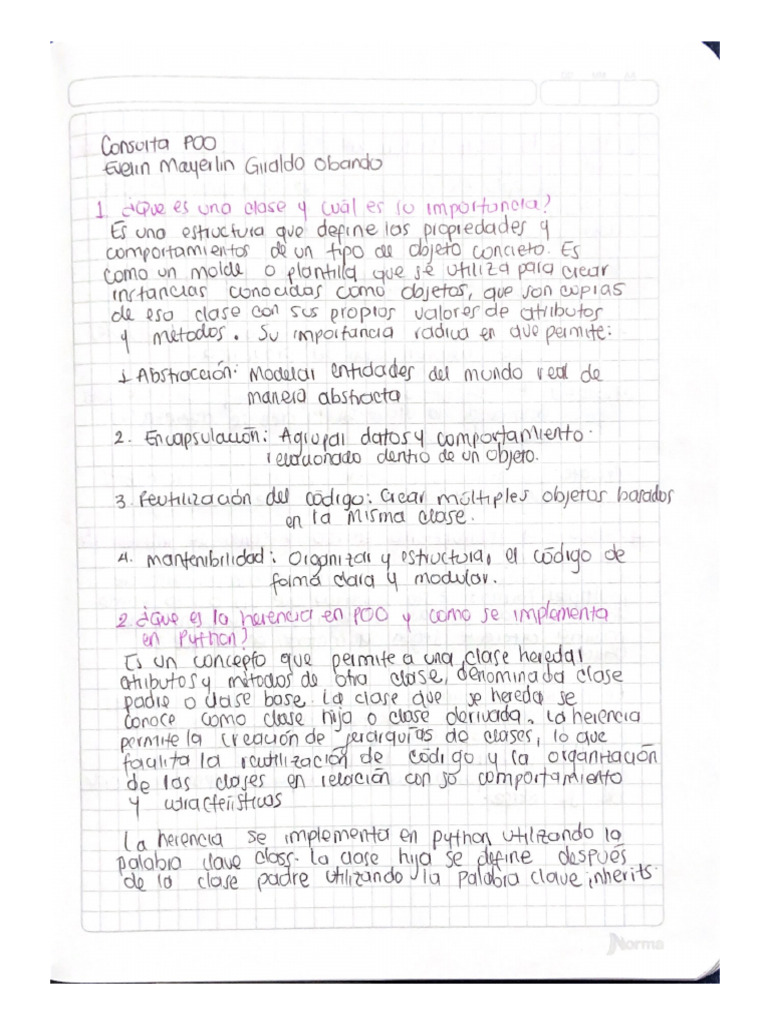 Consulta POO
Evelin Mayerlin Giraldo Obando
1. ¿Que es una clase y cuál es su importancia?
Es una estructura que define las propiedades y
comportamientos de un tipo de objeto concreto. Es
como un molde o plantilla que se utiliza para crear
instancias conocidas como objetos, que son copias
de esa clase con sus propios valores de atributos
y métodos. Su importancia radica en que permite:
1 Abstracción: Modelar entidades del mundo real de
manera abstracta
2. Encapsulación: Agrupar datos y comportamiento
relacionado dentro de un objeto.
3. Reutilización del código: Crear múltiples objetos basados
en la misma clase.
4. Mantenibilidad: Organizar y estructurar el código de
forma clara y modular.
2. ¿Que es la herencia en POO y como se implementa
en Python?
Es un concepto que permite a una clase heredar
atributos y métodos de otra clase, denominada clase
padre o clase base. La clase que se hereda se
conoce como clase hija o clase derivada. La herencia
permite la creación de jerarquías de clases, lo que
facilita la reutilización de código y la organización
de las clases en relación con so comportamiento
y características
La herencia se implementa en python utilizando la
palabra clave class. La clase hija se define después
de la clase padre utilizando la palabra clave inherits.
Norma